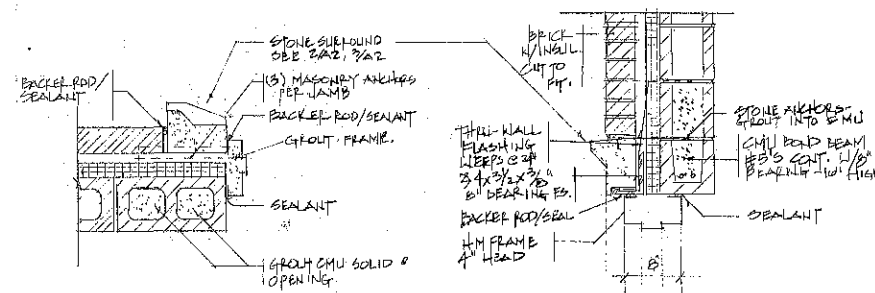 STONE SURROUND
SEE 2/A2, 3/A2
(3) MASONRY ANCHORS
PER JAMB
BACKER ROD/
SEALANT
BACKER ROD/SEALANT
GROUT FRAME.
SEALANT
GROUT CMU SOLID @
OPENING
BRICK
W/INSUL.
CUT TO
FIT.
THRU WALL
FLASHING
WEEPS @ 24"
4 x 3 1/2 x 3/8"
8" BEARING ES.
BACKER ROD/SEAL
HM FRAME
4" HEAD
STONE ANCHORS-
GROUT INTO CMU
CMU BOND BEAM
#5'S CONT. W/8"
BEARING
SEALANT
8"